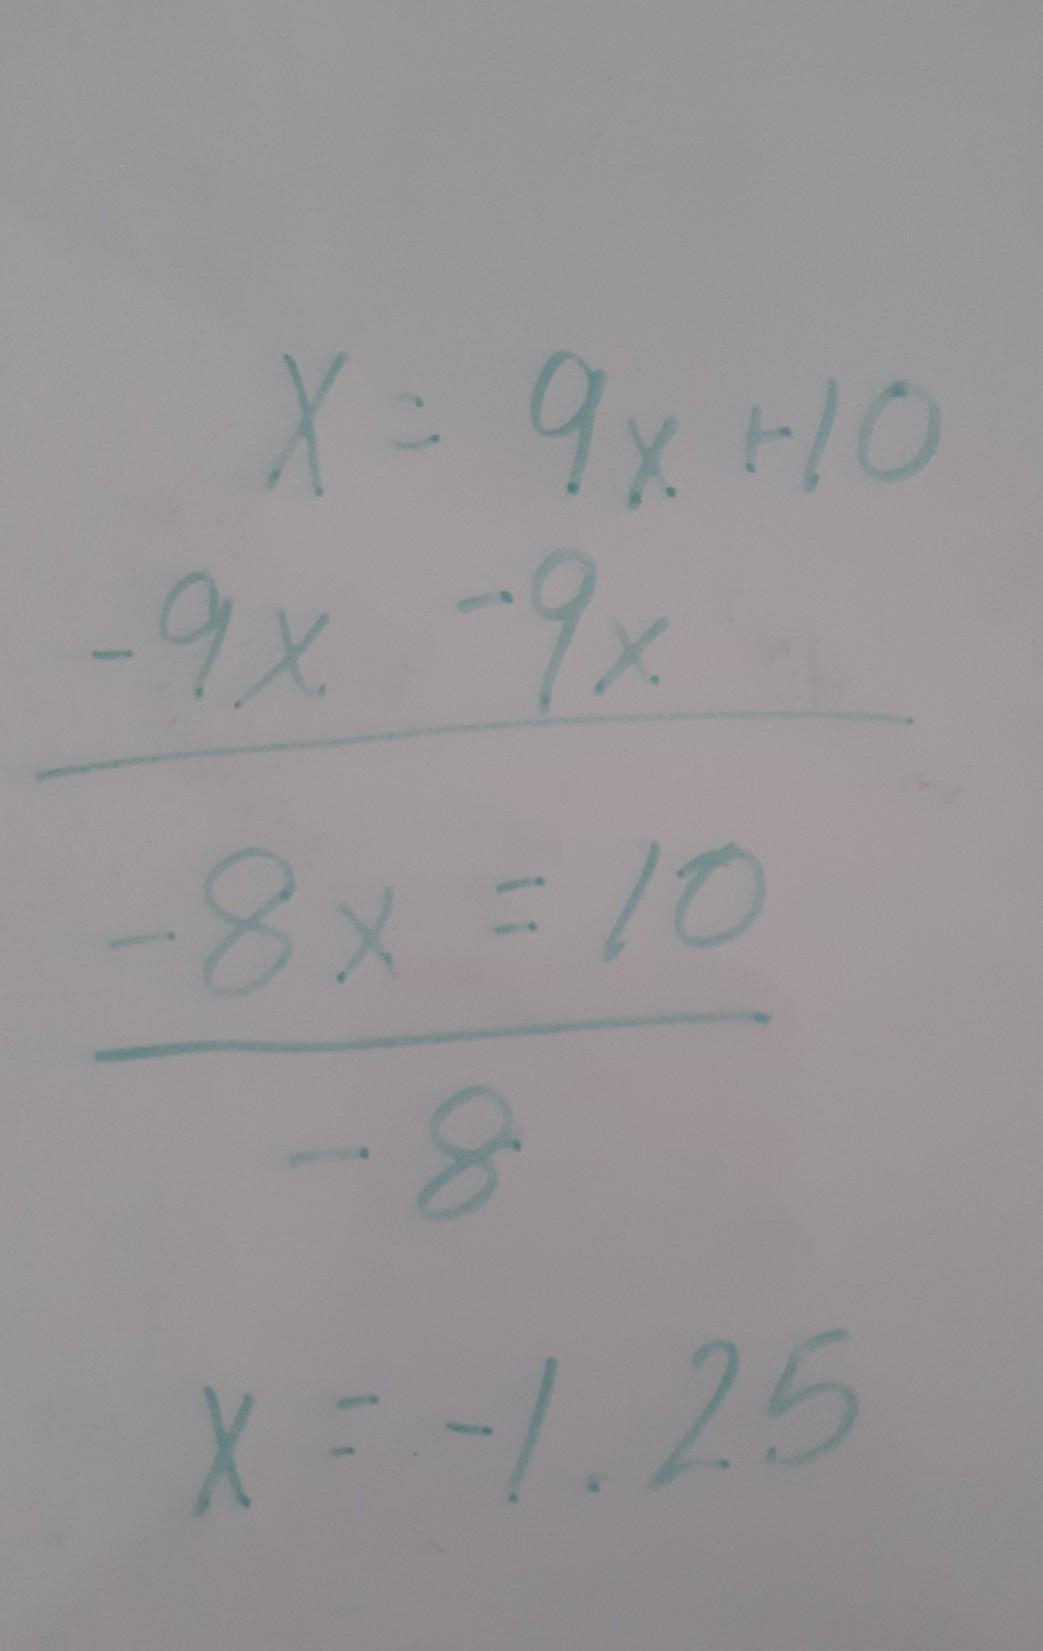 x = 9x +10
-9x -9x
-8x = 10
-8
x = -1.25